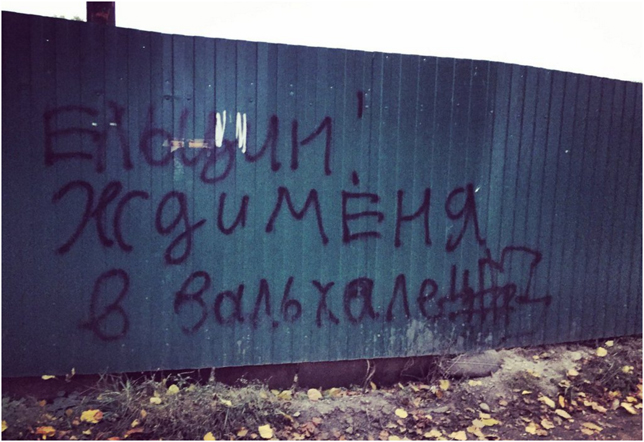 Ельцин!
Жди меня
в вальхале